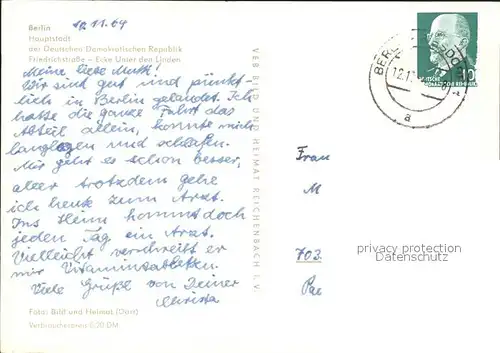 Berlin
12.11.69
Hauptstadt
der Deutschen Demokratischen Republik
Friedrichstraße – Ecke Unter den Linden
Meine liebe Mutti!
Wir sind gut und pünkt-
lich in Berlin gelandet. Ich
hatte die ganze Fahrt das
Abteil allein, konnte mich
langlegen und schlafen.
Mir geht es schon besser,
aber trotzdem gehe
ich heute zum Arzt.
Ins Heim kommt doch
jeden Tag ein Arzt.
Vielleicht verschreibt er
mir Vitamintabletten.
Viele Grüße von Deiner
Christa
Foto: Bild und Heimat (Darr)
Verbraucherpreis 0,20 DM
VEB BILD UND HEIMAT REICHENBACH I. V.
BERLIN
12.11
a
DEUTSCHE
10
Frau
M
703
Pae
privacy protection
Datenschutz